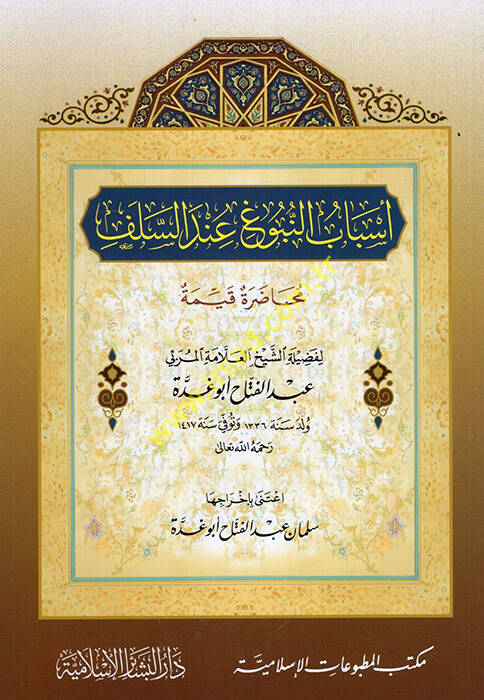 أسباب النبوغ عند السلف
محاضرة قيمة
لفضيلة الشيخ العلامة المربي
عبد الفتاح أبو غدة
ولد سنة ١٣٣٦ وتوفي سنة ١٤١٧
رحمه الله تعالى
اعتنى بإخراجها
سلمان عبد الفتاح أبو غدة
مكتب المطبوعات الإسلامية
دار البشائر الإسلامية